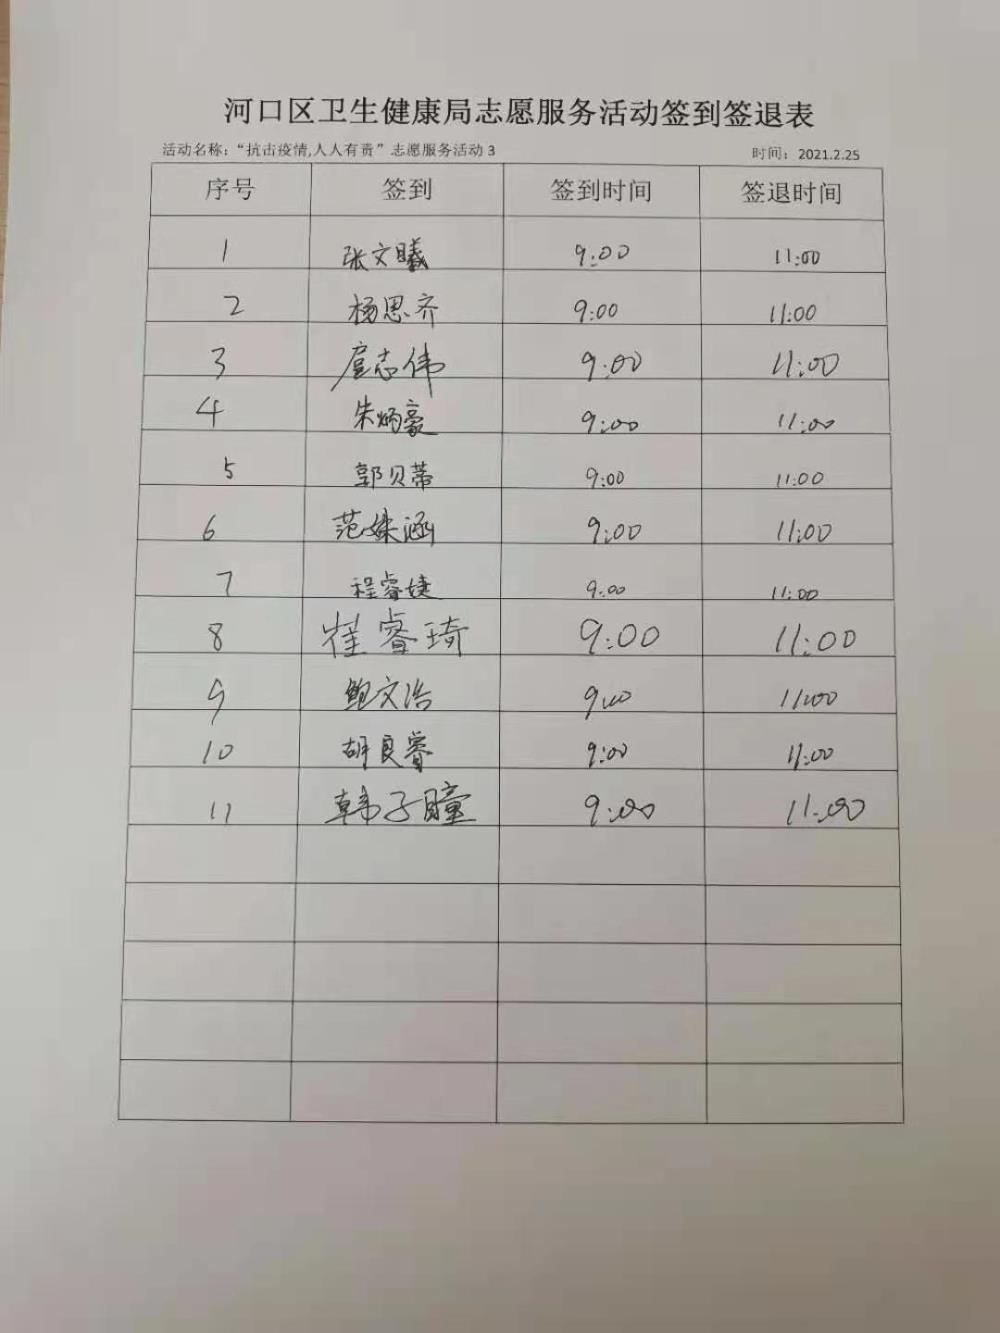 河口区卫生健康局志愿服务活动签到签退表
活动名称：“抗击疫情,人人有责”志愿服务活动3 时间：2021.2.25
序号 签到 签到时间 签退时间
1 张文曦 9:00 11:00
2 杨思齐 9:00 11:00
3 扈志伟 9:00 11:00
4 朱炳豪 9:00 11:00
5 郭贝蒂 9:00 11:00
6 范姝涵 9:00 11:00
7 程睿婕 9:00 11:00
8 崔睿琦 9:00 11:00
9 鲍文浩 9:00 11:00
10 胡良睿 9:00 11:00
11 韩子瞳 9:00 11:00